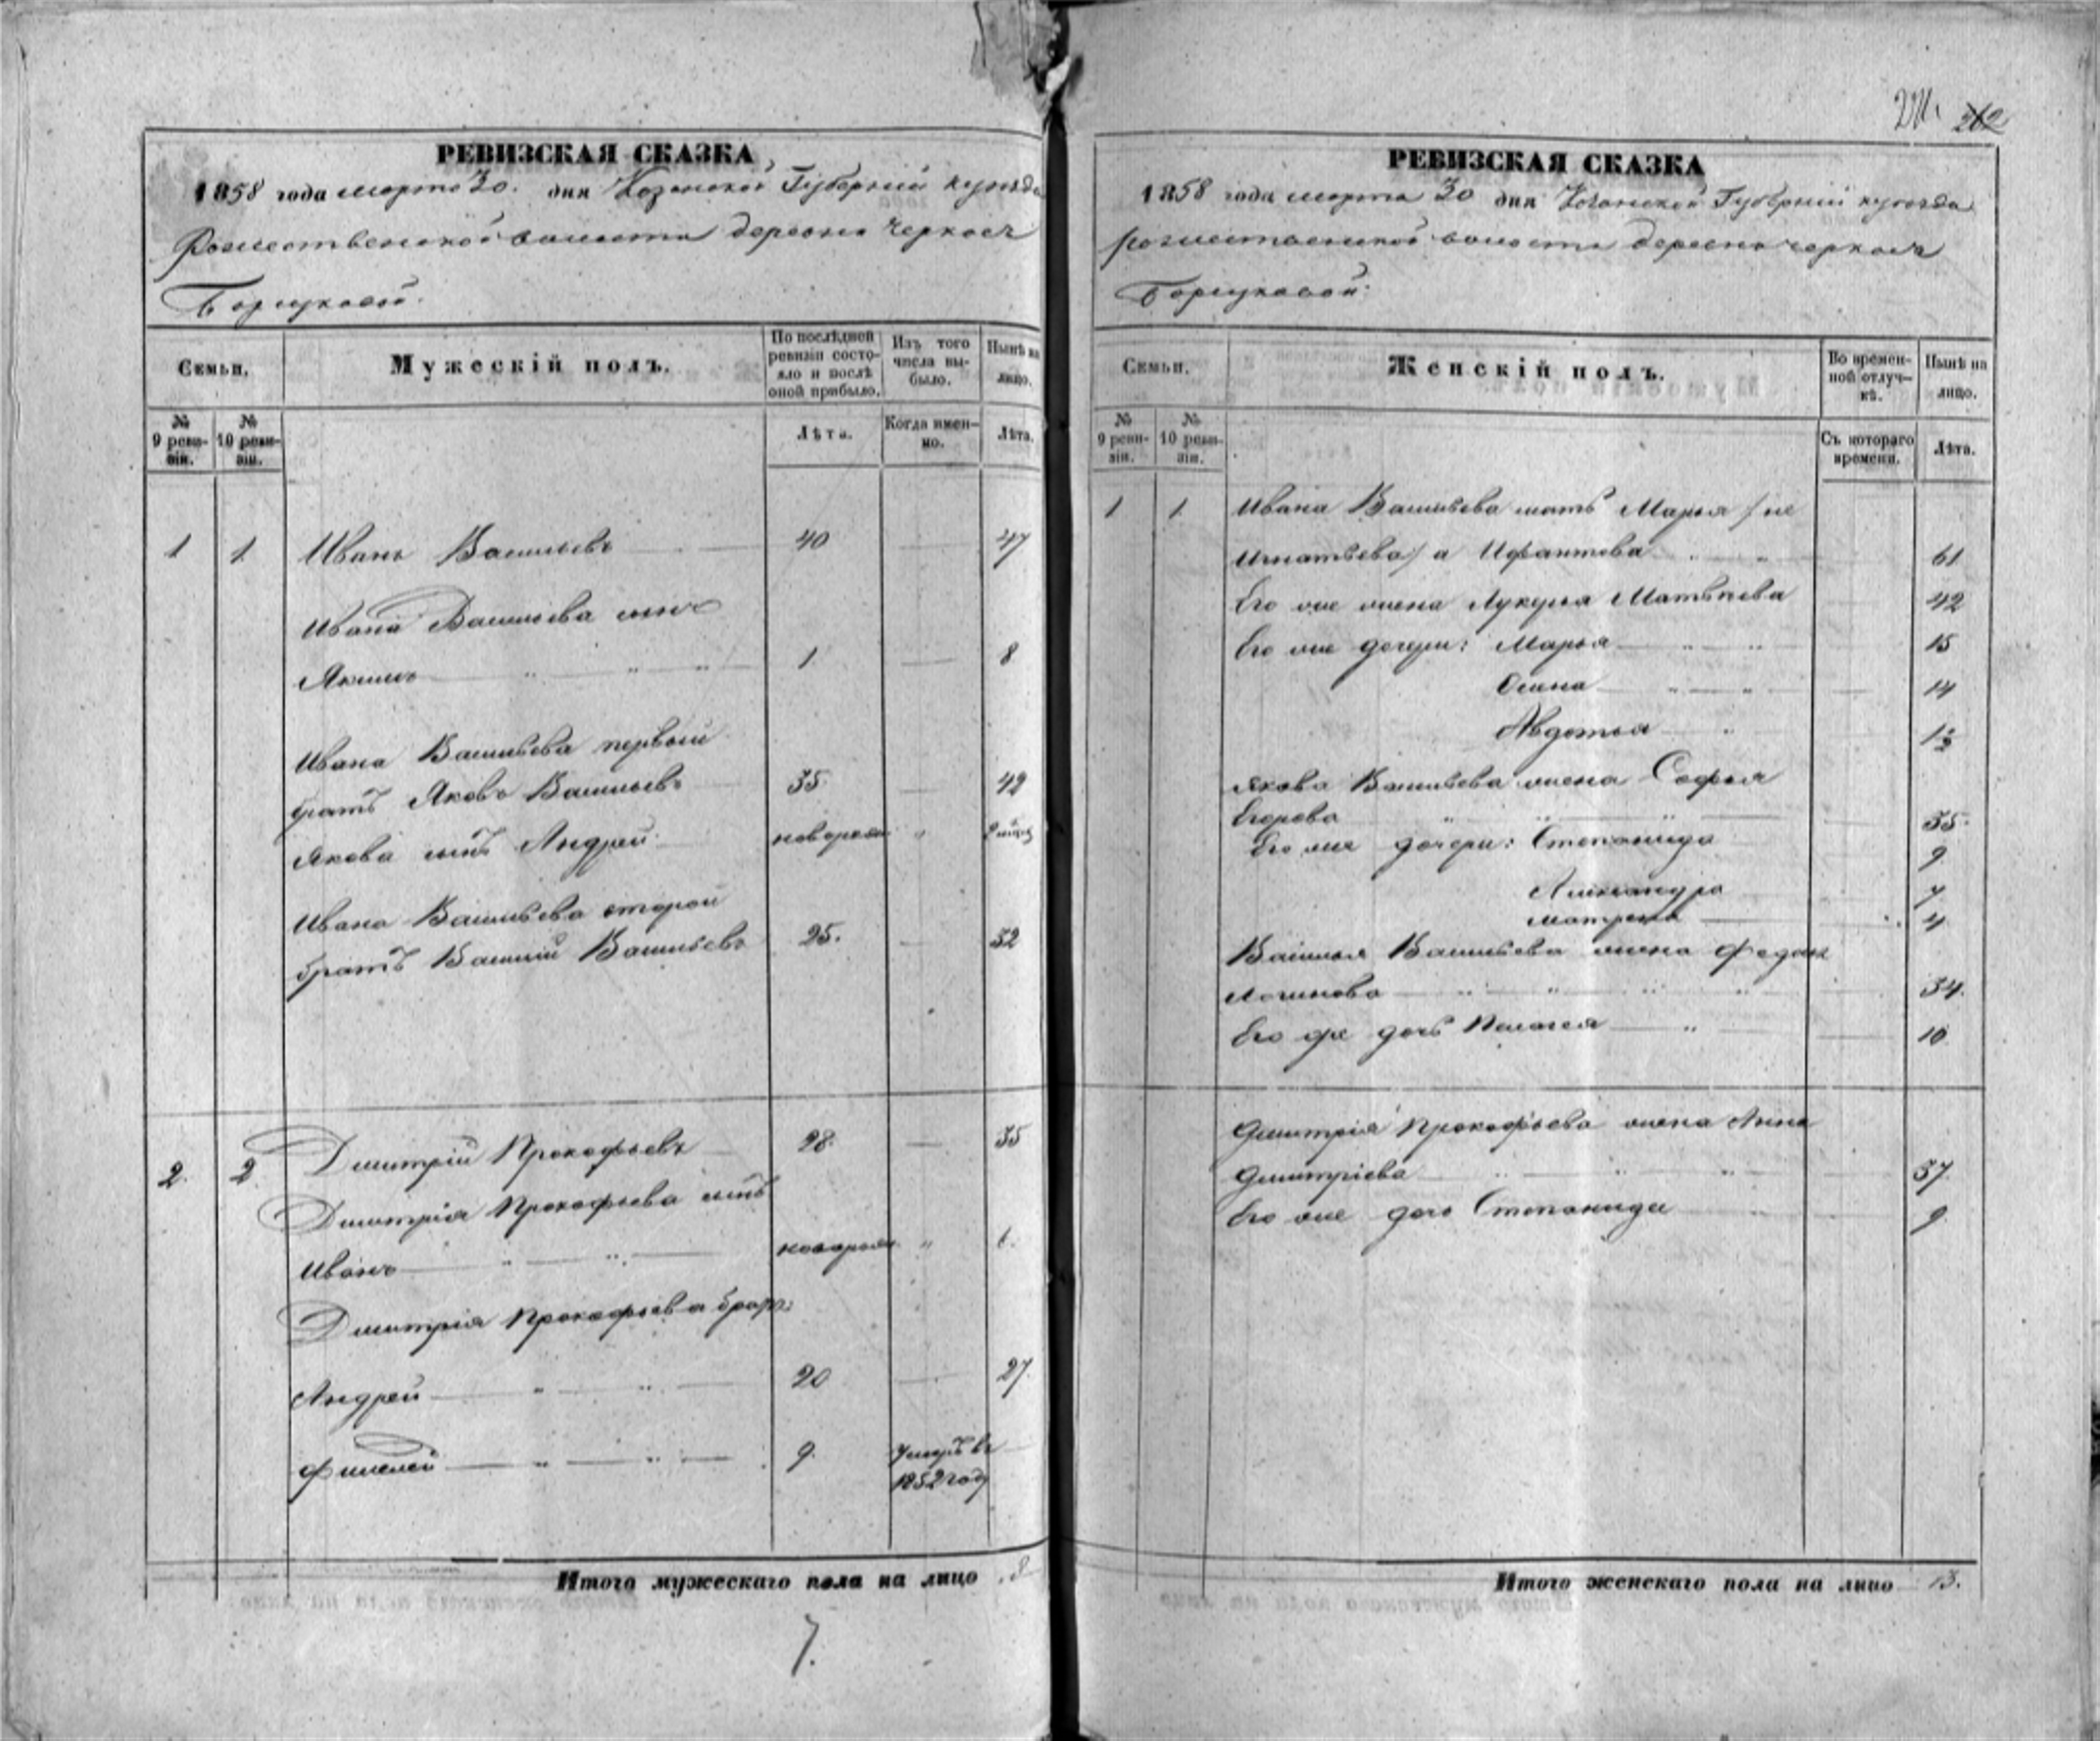 211. 202
РЕВИЗСКАЯ СКАЗКА
1858 года марта 30. дня Казанской Губернии и уезда
Рожественской волости деревни Черкасъ
Борщковой.
Семьи.
Мужескій полъ.
По послѣдней ревизіи состояло и послѣ оной прибыло.
Изъ того числа выбыло.
Нынѣ на лицо.
№ 9 ревизіи.
№ 10 ревизіи.
Лѣта.
Когда именно.
Лѣта.
1 1 Иванъ Васильевъ 40 47
Ивана Васильева сынъ
Якимъ 1 8
Ивана Васильева первый
братъ Яковъ Васильевъ 35 42
Якова сынъ Андрей новорож
Ивана Васильева второй
братъ Василій Васильевъ 25. 32
2. 2. Дмитрій Прокофьевъ 28. 35
Дмитрія Прокофьева сынъ
Иванъ новорож 6.
Дмитрія Прокофьева брат:
Андрей 20 27.
9. Умеръ въ
1852 году
Итого мужескаго пола на лицо 8
7.
РЕВИЗСКАЯ СКАЗКА
1858 года марта 30 дня Казанской Губерніи и уезда
Рожественской волости деревни Черкасъ
Борщковой.
Семьи.
Женскій полъ.
Во временной отлучкѣ.
Нынѣ на лицо.
№ 9 ревизіи.
№ 10 ревизіи.
Съ котораго времени.
Лѣта.
1 1 Ивана Васильева мать Марья /не
Игнатьева/ а Ифантова 61
Его же жена Лукерья Матвѣева 42
Его же дочери: Марья 15
Олена 14
Авдотья
Якова Васильева жена Софья
Егорова 35.
Его же дочери: Степанида 9
Александра 7
Матрена 4
Василья Васильева жена Федос
Логинова 34.
Его же дочь Пелагея 10
Дмитрія Прокофьева жена Анна
Дмитріева 37.
Его же дочь Степанида 9
Итого женскаго пола на лицо 13.